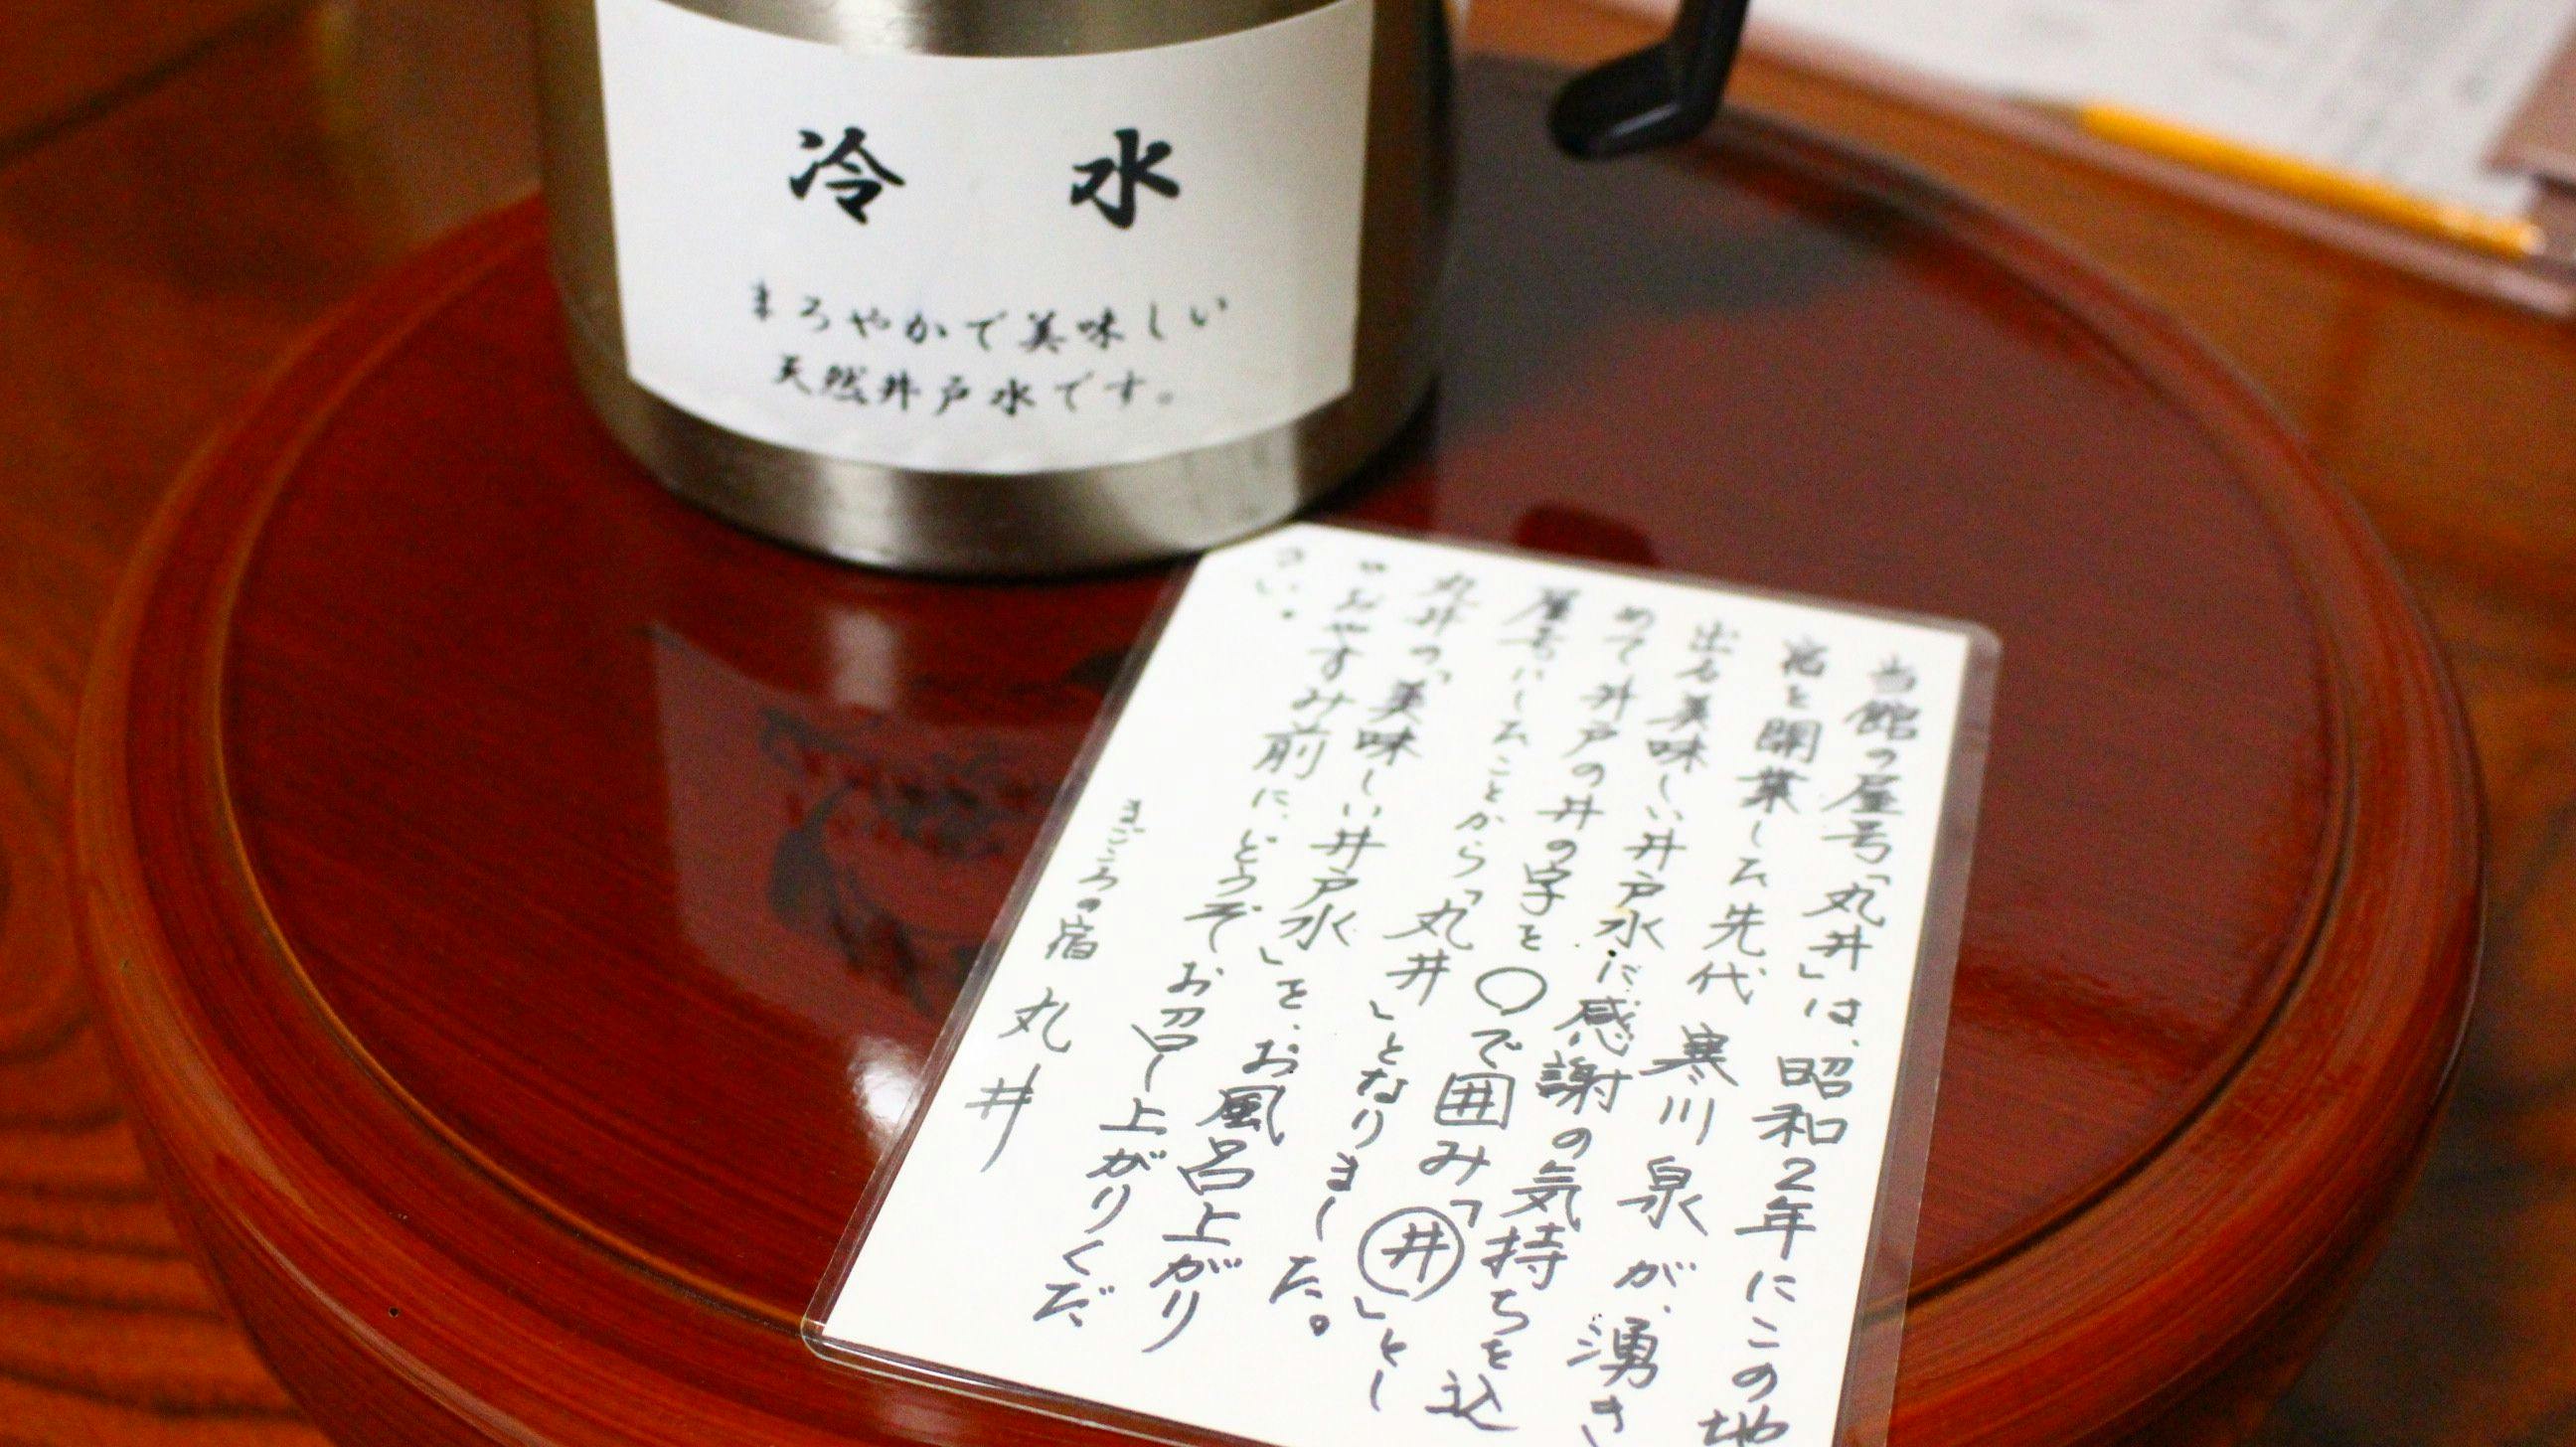 冷 水
まろやかで美味しい
天然井戸水です。
当館の屋号「丸井」は、昭和2年にこの地
宿を開業した先代 寒川 泉が、湧き
出る美味しい井戸水に感謝の気持ちを込
めて井戸の井の字を〇で囲み「井」とし
屋号にしたことから「丸井」となりました。
丸井の「美味しい井戸水」を、お風呂上がり
やおやすみ前に、どうぞお召し上がりくだ
さい。
まごころの宿 丸井